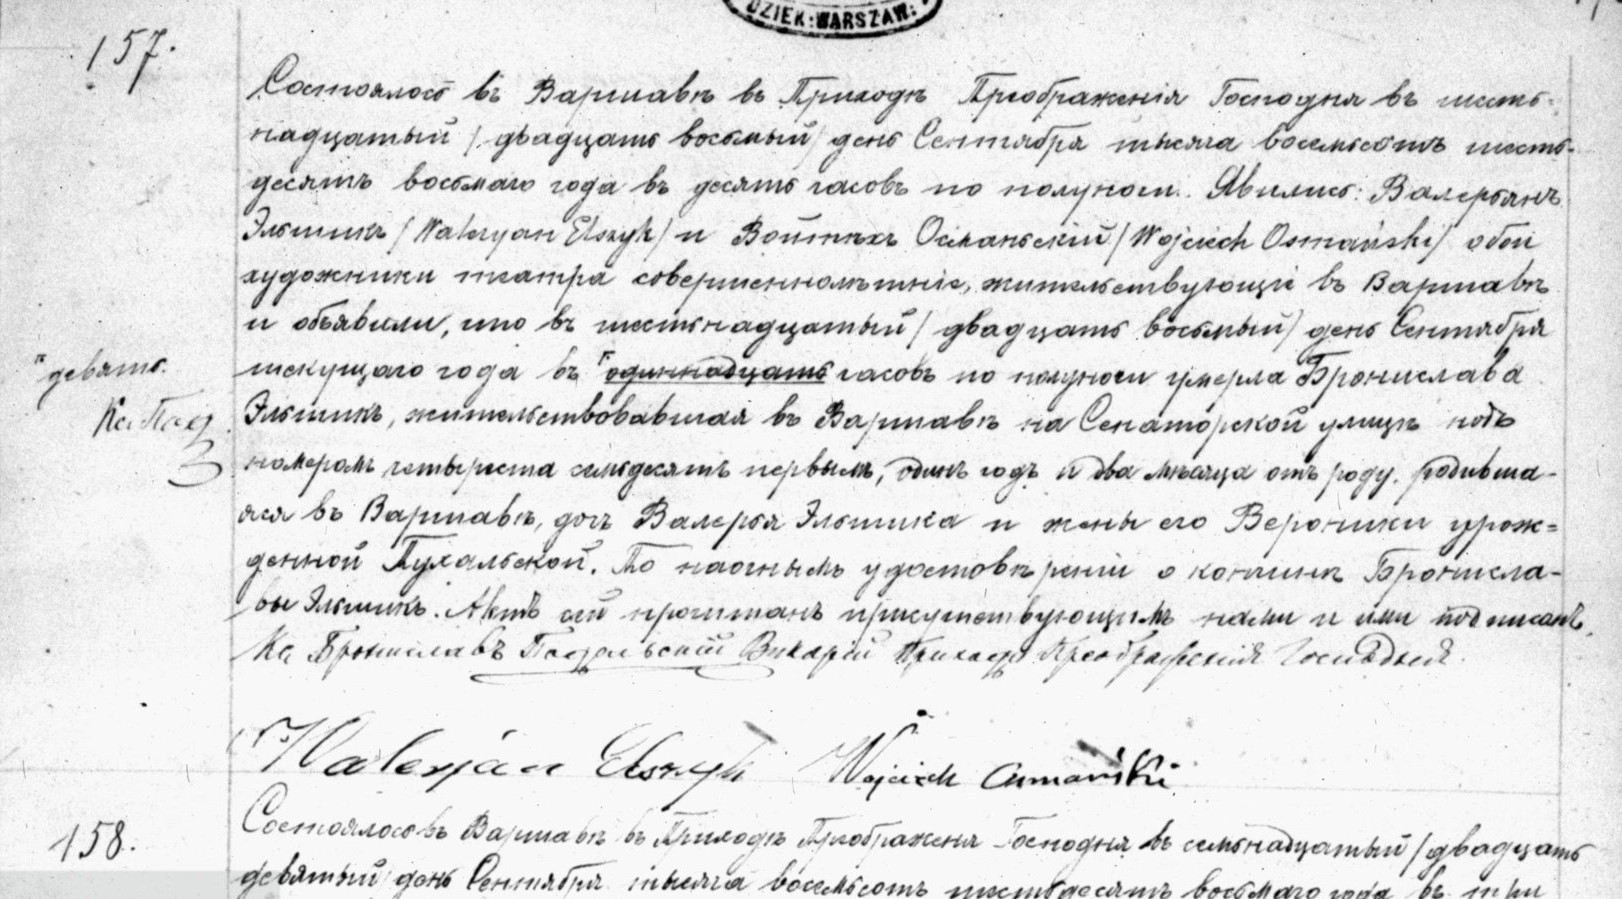 DZIEK: WARSZAW:
157.
Состоялось въ Варшавѣ въ Приходѣ Преображенія Господня въ шесть-
надцатый /двадцать восьмый/ день Сентября тысяча восемьсотъ шесть-
десятъ восьмаго года въ десять часовъ по полуночи. Явились: Валерьянъ
Эльшикъ /Waleryan Elszyk/ и Войтѣхъ Османьскій /Wojciech Osmański/ обои
художники театра совершеннолѣтніе, жительствующіе въ Варшавѣ
и объявили, что въ шестьнадцатый /двадцать восьмый/ день Сентября
"девять.
текущаго года въ "одиннадцать часовъ по полуночи умерла Бронислава
Кс Под
Эльшикъ, жительствовавшая въ Варшавѣ на Сенаторской улицѣ подъ
номеромъ четыреста семьдесятъ первымъ, одинъ годъ и два мѣсяца отъ роду, родивша-
яся въ Варшавѣ, дочь Валерья Эльшика и жены его Вероники урож=
денной Пухальской. По наочнымъ удостовѣреніи о кончинѣ Брониславы-
вы Эльшикъ. Актъ сей прочитанъ присутствующимъ нами и ими подписанъ.
Кс Брониславъ Подольскій Викарій Прихода Преображенія Господня.
Waleryan Elszyk Wojciech Osmański
158.
Состоялось въ Варшавѣ въ Приходѣ Преображеня Господня въ семьнадцатый /двадцать
девятый/ день Сентября тысяча восемьсотъ шестьдесятъ восьмаго года въ три